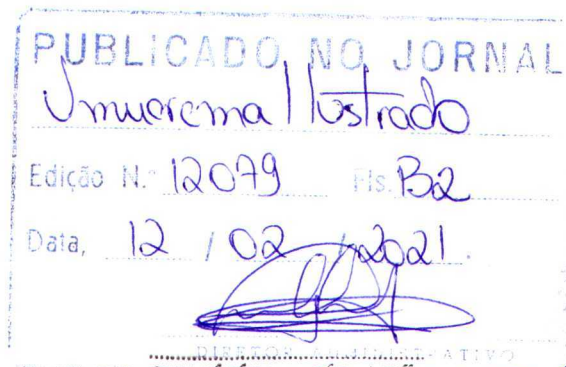 PUBLICADO NO JORNAL
Umuarama Ilustrado
Edição N.º 12079 Fls. B2
Data, 12 / 02 / 2021.
DIRETOR ADMINISTRATIVO